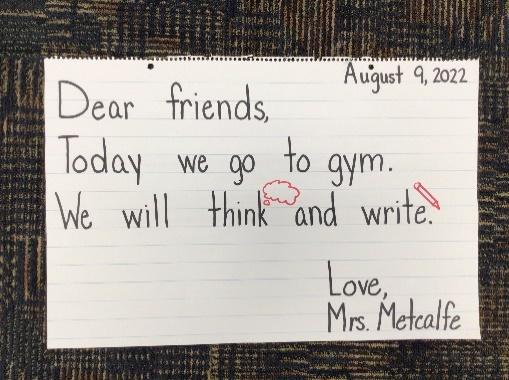 August 9, 2022
Dear friends,
Today we go to gym.
We will think and write.
Love,
Mrs. Metcalfe